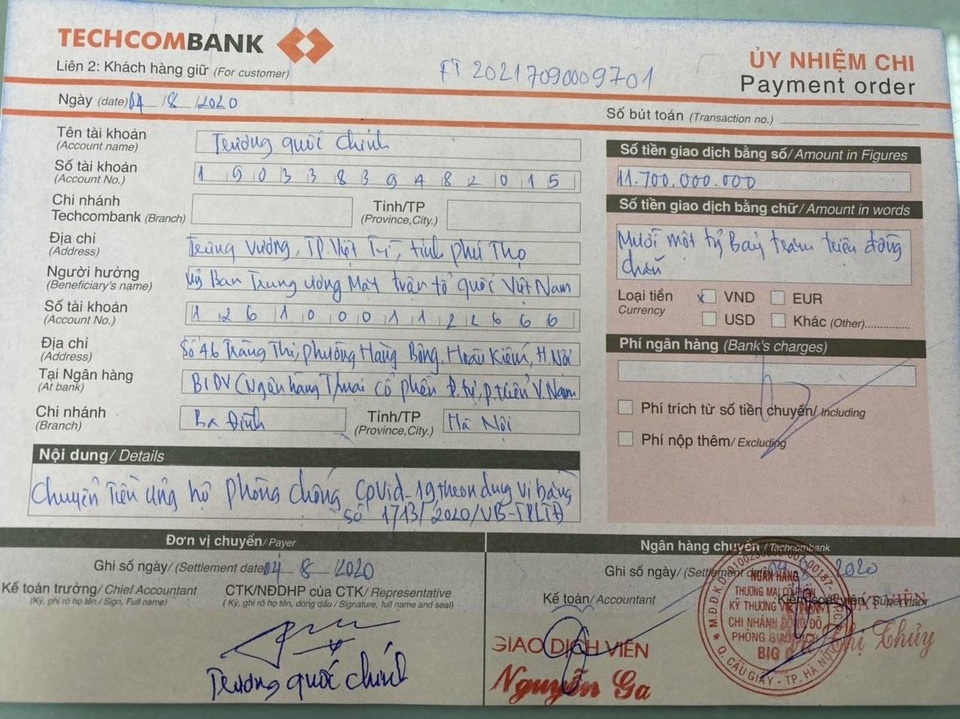 TECHCOMBANK
Liên 2: Khách hàng giữ (For customer)
FT 20217090009701
ỦY NHIỆM CHI
Payment order
Ngày (date) 04 / 8 / 2020
Số bút toán (Transaction no.)
Tên tài khoản Trương quốc Chính
(Account name)
Số tài khoản 19033839482015
(Account No.)
Chi nhánh Tỉnh/TP
Techcombank (Branch) (Province,City.)
Địa chỉ Trưng Vương, TP. Việt Trì, tỉnh Phú Thọ
(Address)
Người hưởng Uỷ Ban Trung ương Mặt trận tổ quốc Việt Nam
(Beneficiary's name)
Số tài khoản 12610001122666
(Account No.)
Địa chỉ Số 46 Tràng Thi, Phường Hàng Bông, Hoàn Kiếm, H. Nội
(Address)
Tại Ngân hàng BIDV (Ngân hàng Thmai cổ phần Đ.tư, p.triển V.Nam
(At bank)
Chi nhánh Ba Đình Tỉnh/TP Hà Nội
(Branch) (Province,City.)
Số tiền giao dịch bằng số/ Amount in Figures
11.700.000.000
Số tiền giao dịch bằng chữ/ Amount in words
Mười một tỷ Bảy trăm triệu đồng
chẵn
Loại tiền x VND EUR
Currency USD Khác (Other)..............
Phí ngân hàng (Bank's charges)
Phí trích từ số tiền chuyển/ Including
Phí nộp thêm/ Excluding
Nội dung/ Details
Chuyển Tiền ủng hộ phòng chống Covid-19 theo
số 1713/2020/VB-TPLTĐ
Đơn vị chuyển/ Payer
Ghi sổ ngày/ (Settlement date) 04 - 8 - 2020
Kế toán trưởng/ Chief Accountant CTK/NĐDHP của CTK/ Representative
(Ký, ghi rõ họ tên / Sign, Full name) ( Ký, ghi rõ họ tên, đóng dấu / Signature, full name and seal)
Trương quốc Chính
Ngân hàng chuyển/ Techcombank
Ghi sổ ngày/ (Settlement 2020
Kế toán/ Accountant Kiểm soát viên/ Supervisor
GIAO DỊCH VIÊN
Nguyễn Ga
NGÂN HÀNG
THƯƠNG MẠI CỔ
KỸ THƯƠNG VIỆT NAM
CHI NHÁNH ĐÔNG ĐÔ
PHÒNG GIAO DỊCH
BIG
Q. CẦU GIẤY - TP. HÀ NỘI
Thị Thủy